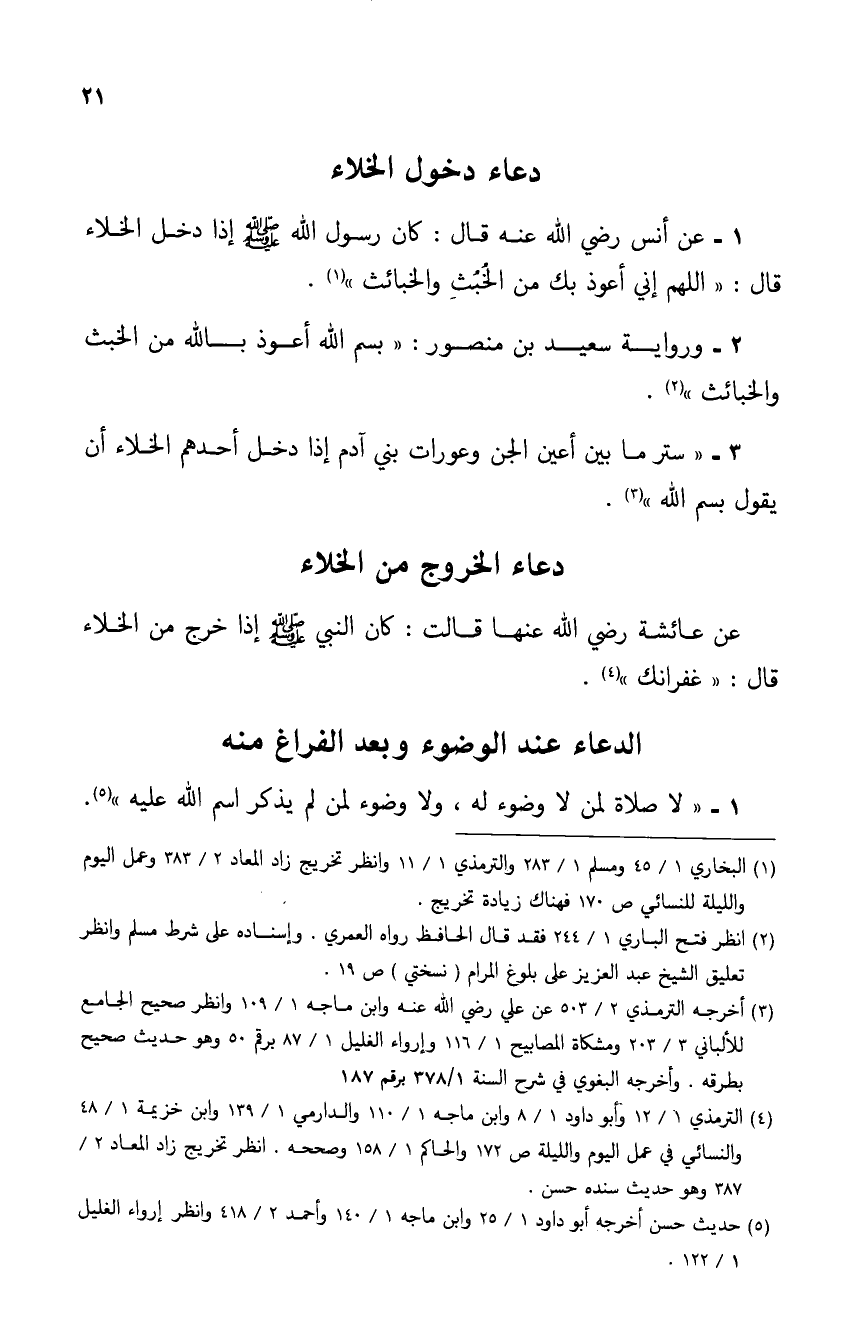 ٢١
دعاء دخول الخلاء
١ - عن أنس رضي الله عنه قال : كان رسول الله ﷺ إذا دخل الخلاء
قال : « اللهم إني أعوذ بك من الخُبُثِ والخبائث »(١) .
٢ - ورواية سعيد بن منصور : « بسم الله أعوذ بالله من الخبث
والخبائث »(٢) .
٣ - « ستر ما بين أعين الجن وعورات بني آدم إذا دخل أحدهم الخلاء أن
يقول بسم الله »(٣) .
دعاء الخروج من الخلاء
عن عائشة رضي الله عنها قالت : كان النبي ﷺ إذا خرج من الخلاء
قال : « غفرانك »(٤) .
الدعاء عند الوضوء وبعد الفراغ منه
١ - « لا صلاة لمن لا وضوء له ، ولا وضوء لمن لم يذكر اسم الله عليه »(٥).
(١) البخاري ١ / ٤٥ ومسلم ١ / ٢٨٣ والترمذي ١ / ١١ وانظر تخريج زاد المعاد ٢ / ٣٨٣ وعمل اليوم
والليلة للنسائي ص ١٧٠ فهناك زيادة تخريج .
(٢) انظر فتح الباري ١ / ٢٤٤ فقد قال الحافظ رواه العمري . وإسناده على شرط مسلم وانظر
تعليق الشيخ عبد العزيز على بلوغ المرام ( نسختي ) ص ١٩ .
(٣) أخرجه الترمذي ٢ / ٥٠٣ عن علي رضي الله عنه وابن ماجه ١ / ١٠٩ وانظر صحيح الجامع
للألباني ٣ / ٢٠٣ ومشكاة المصابيح ١ / ١١٦ وإرواء الغليل ١ / ٨٧ برقم ٥٠ وهو حديث صحيح
بطرقه . وأخرجه البغوي في شرح السنة ٣٧٨/١ برقم ١٨٧
(٤) الترمذي ١ / ١٢ وأبو داود ١ / ٨ وابن ماجه ١ / ١١٠ والدارمي ١ / ١٣٩ وابن خزيمة ١ / ٤٨
والنسائي في عمل اليوم والليلة ص ١٧٢ والحاكم ١ / ١٥٨ وصححه . انظر تخريج زاد المعاد ٢ /
٣٨٧ وهو حديث سنده حسن .
(٥) حديث حسن أخرجه أبو داود ١ / ٢٥ وابن ماجه ١ / ١٤٠ وأحمد ٢ / ٤١٨ وانظر إرواء الغليل
١ / ١٢٢ .